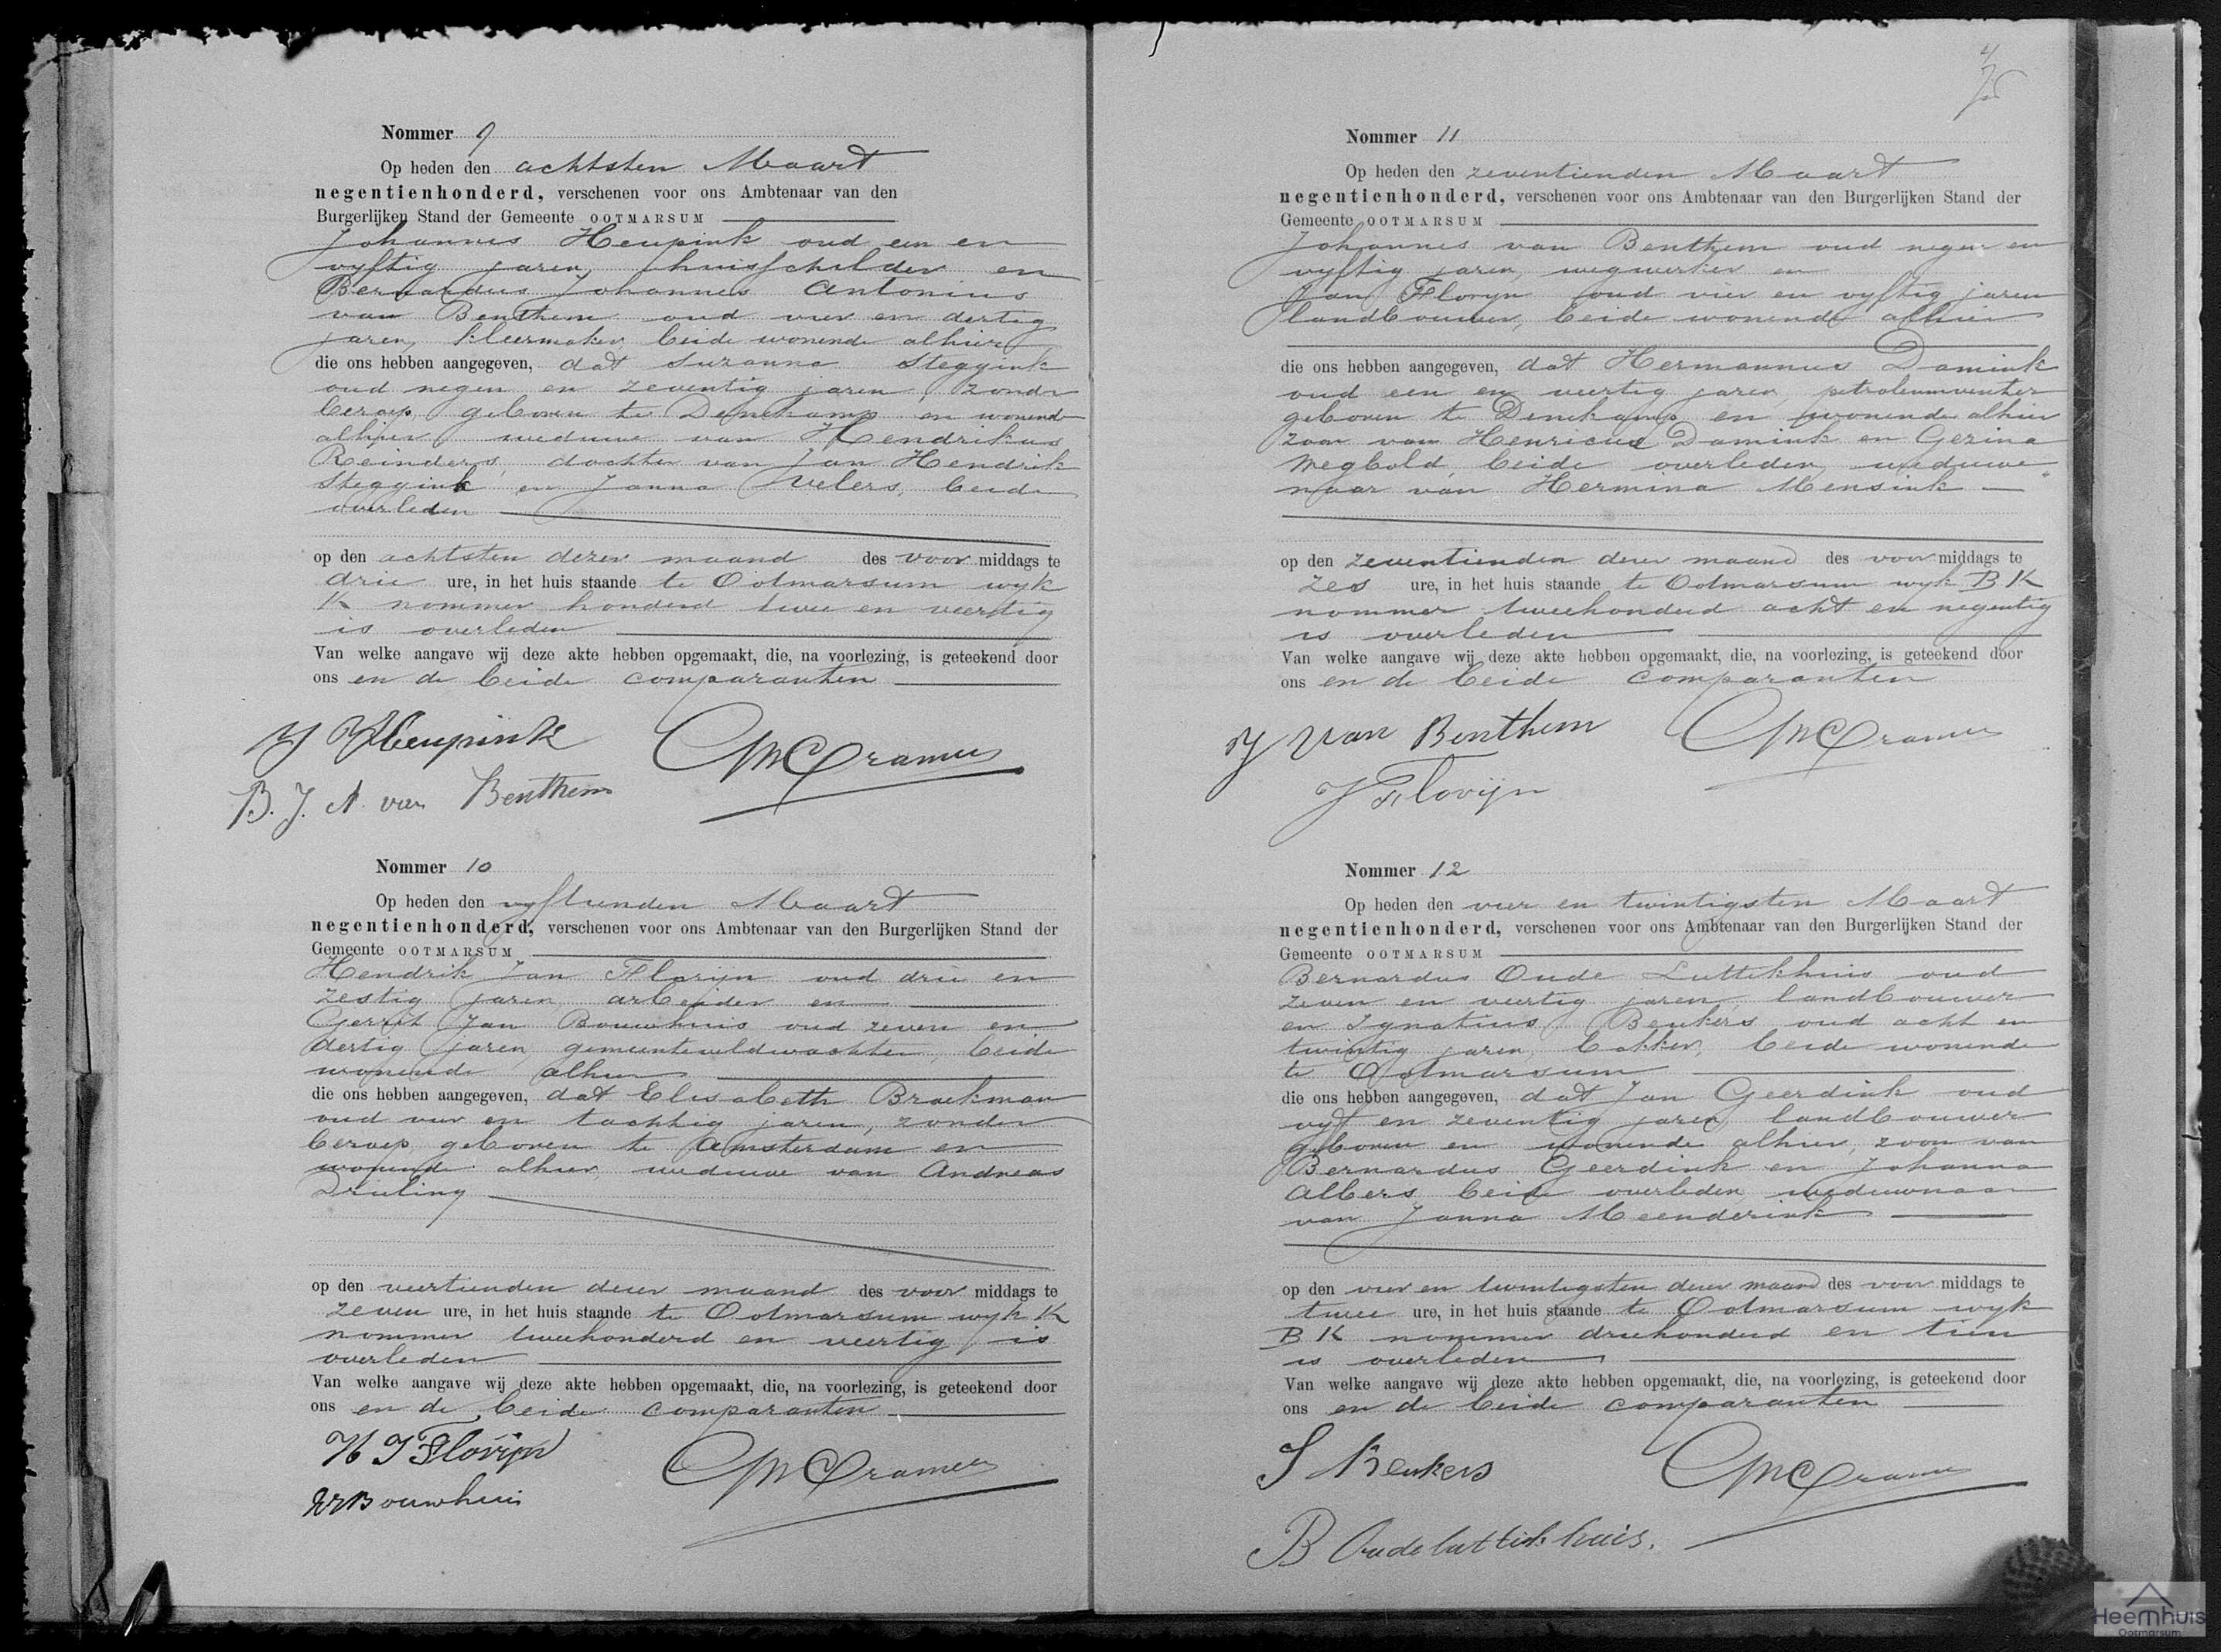 Nommer 9
Op heden den achtsten Maart
negentienhonderd, verschenen voor ons Ambtenaar van den
Burgerlijken Stand der Gemeente OOTMARSUM
Johannes Heupink oud een en
vyftig jaren, huisschilder en
Bernardus Johannes Antonius
van Benthem oud vier en dertig
jaren, kleermaker, beide wonende alhier
die ons hebben aangegeven, dat Suzanna Steggink
oud negen en zeventig jaren, zonder
beroep, geboren te Denekamp en wonende
alhier weduwe van Hendrikus
Reinders, dochter van Jan Hendrik
Steggink en Janna Welers, beide
overleden
op den achtsten dezer maand des voor middags te
drie ure, in het huis staande te Ootmarsum wyk
K nommer honderd twee en veertig
is overleden
Van welke aangave wij deze akte hebben opgemaakt, die, na voorlezing, is geteekend door
ons en de beide comparanten
J Heupink
CMCramer
B. J. A. van Benthem
Nommer 10
Op heden den vyftienden Maart
negentienhonderd, verschenen voor ons Ambtenaar van den Burgerlijken Stand der
Gemeente OOTMARSUM
Hendrik Jan Florijn oud drie en
zestig jaren, arbeider en
Gerrit Jan Bouwhuis oud zeven en
dertig jaren, gemeenteveldwachter, beide
wonende alhier
die ons hebben aangegeven, dat Elisabeth Braekman
oud vier en tachtig jaren, zonder
beroep, geboren te Amsterdam en
wonende alhier, weduwe van Andreas
Drieling
op den veertienden dezer maand des voor middags te
zeven ure, in het huis staande te Ootmarsum wyk K
nommer tweehonderd en veertig, is
overleden
Van welke aangave wij deze akte hebben opgemaakt, die, na voorlezing, is geteekend door
ons en de beide comparanten
H J Florijn
CMCramer
Bouwhuis
Nommer 11
Op heden den zeventienden Maart
negentienhonderd, verschenen voor ons Ambtenaar van den Burgerlijken Stand der
Gemeente OOTMARSUM
Johannes van Benthem oud negen en
vyftig jaren, wegwerker en
Jan Floryn oud vier en vyftig jaren
landbouwer, beide wonende alhier
die ons hebben aangegeven, dat Hermannus Damink
oud een en veertig jaren, petroleumventer
geboren te Denekamp en wonende alhier
zoon van Henricus Damink en Gezina
Megbold, beide overleden, weduwe
naar van Hermina Mensink
op den zeventienden dezer maand des voor middags te
zes ure, in het huis staande te Ootmarsum wyk BK
nommer tweehonderd acht en negentig
is overleden
Van welke aangave wij deze akte hebben opgemaakt, die, na voorlezing, is geteekend door
ons en de beide comparanten
J van Benthem
CMCramer
J Florijn
Nommer 12
Op heden den vier en twintigsten Maart
negentienhonderd, verschenen voor ons Ambtenaar van den Burgerlijken Stand der
Gemeente OOTMARSUM
Bernardus Oude Luttikhuis oud
zeven en veertig jaren, landbouwer
en Ignatius Beukers oud acht en
twintig jaren, bakker, beide wonende
te Ootmarsum
die ons hebben aangegeven, dat Jan Geerdink oud
vyf en zeventig jaren, landbouwer
geboren en wonende alhier, zoon van
Bernardus Geerdink en Johanna
Albers beide overleden, weduwnaar
van Janna Meenderink
op den vier en twintigsten dezer maand des voor middags te
twee ure, in het huis staande te Ootmarsum wyk
BK nommer driehonderd en tien
is overleden
Van welke aangave wij deze akte hebben opgemaakt, die, na voorlezing, is geteekend door
ons en de beide comparanten
J Beukers
CMCramer
B Oudeluttikhuis.
Heemhuis
Ootmarsum